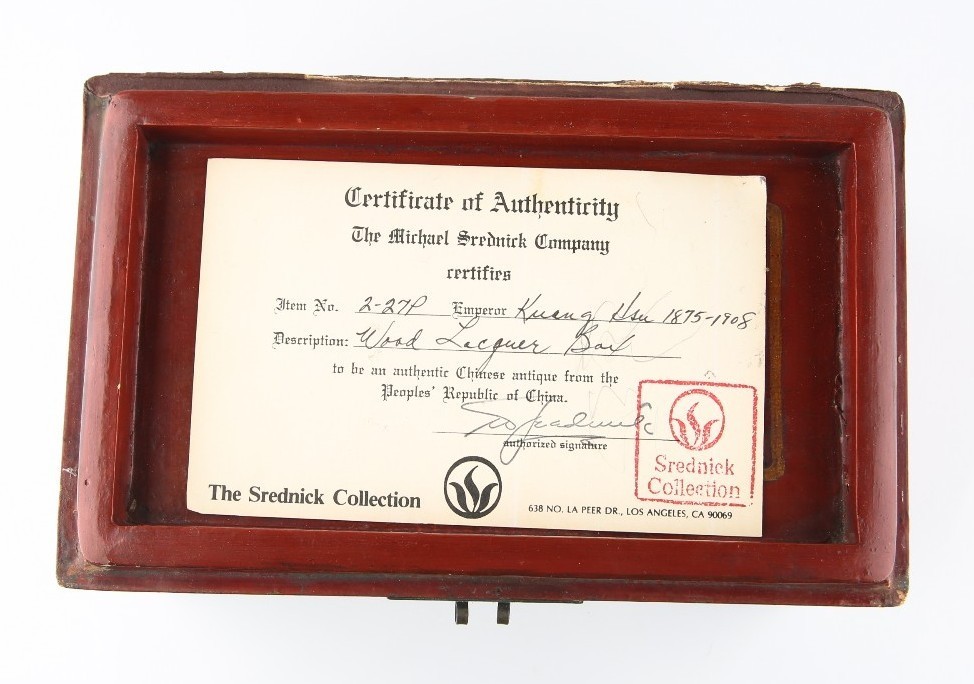 Certificate of Authenticity
The Michael Srednick Company
certifies
Item No. 2-27P Emperor Kuang Hsu 1875-1908
Description: Wood Lacquer Box
to be an authentic Chinese antique from the
Peoples' Republic of China.
authorized signature
Srednick
Collection
The Srednick Collection
638 NO. LA PEER DR., LOS ANGELES, CA 90069